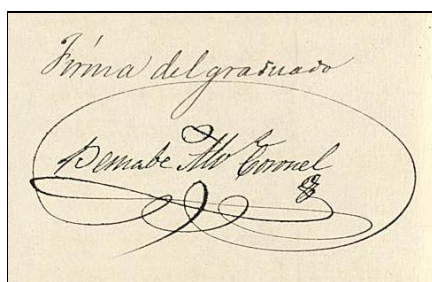 Firma del graduado
Bernabe Coronel